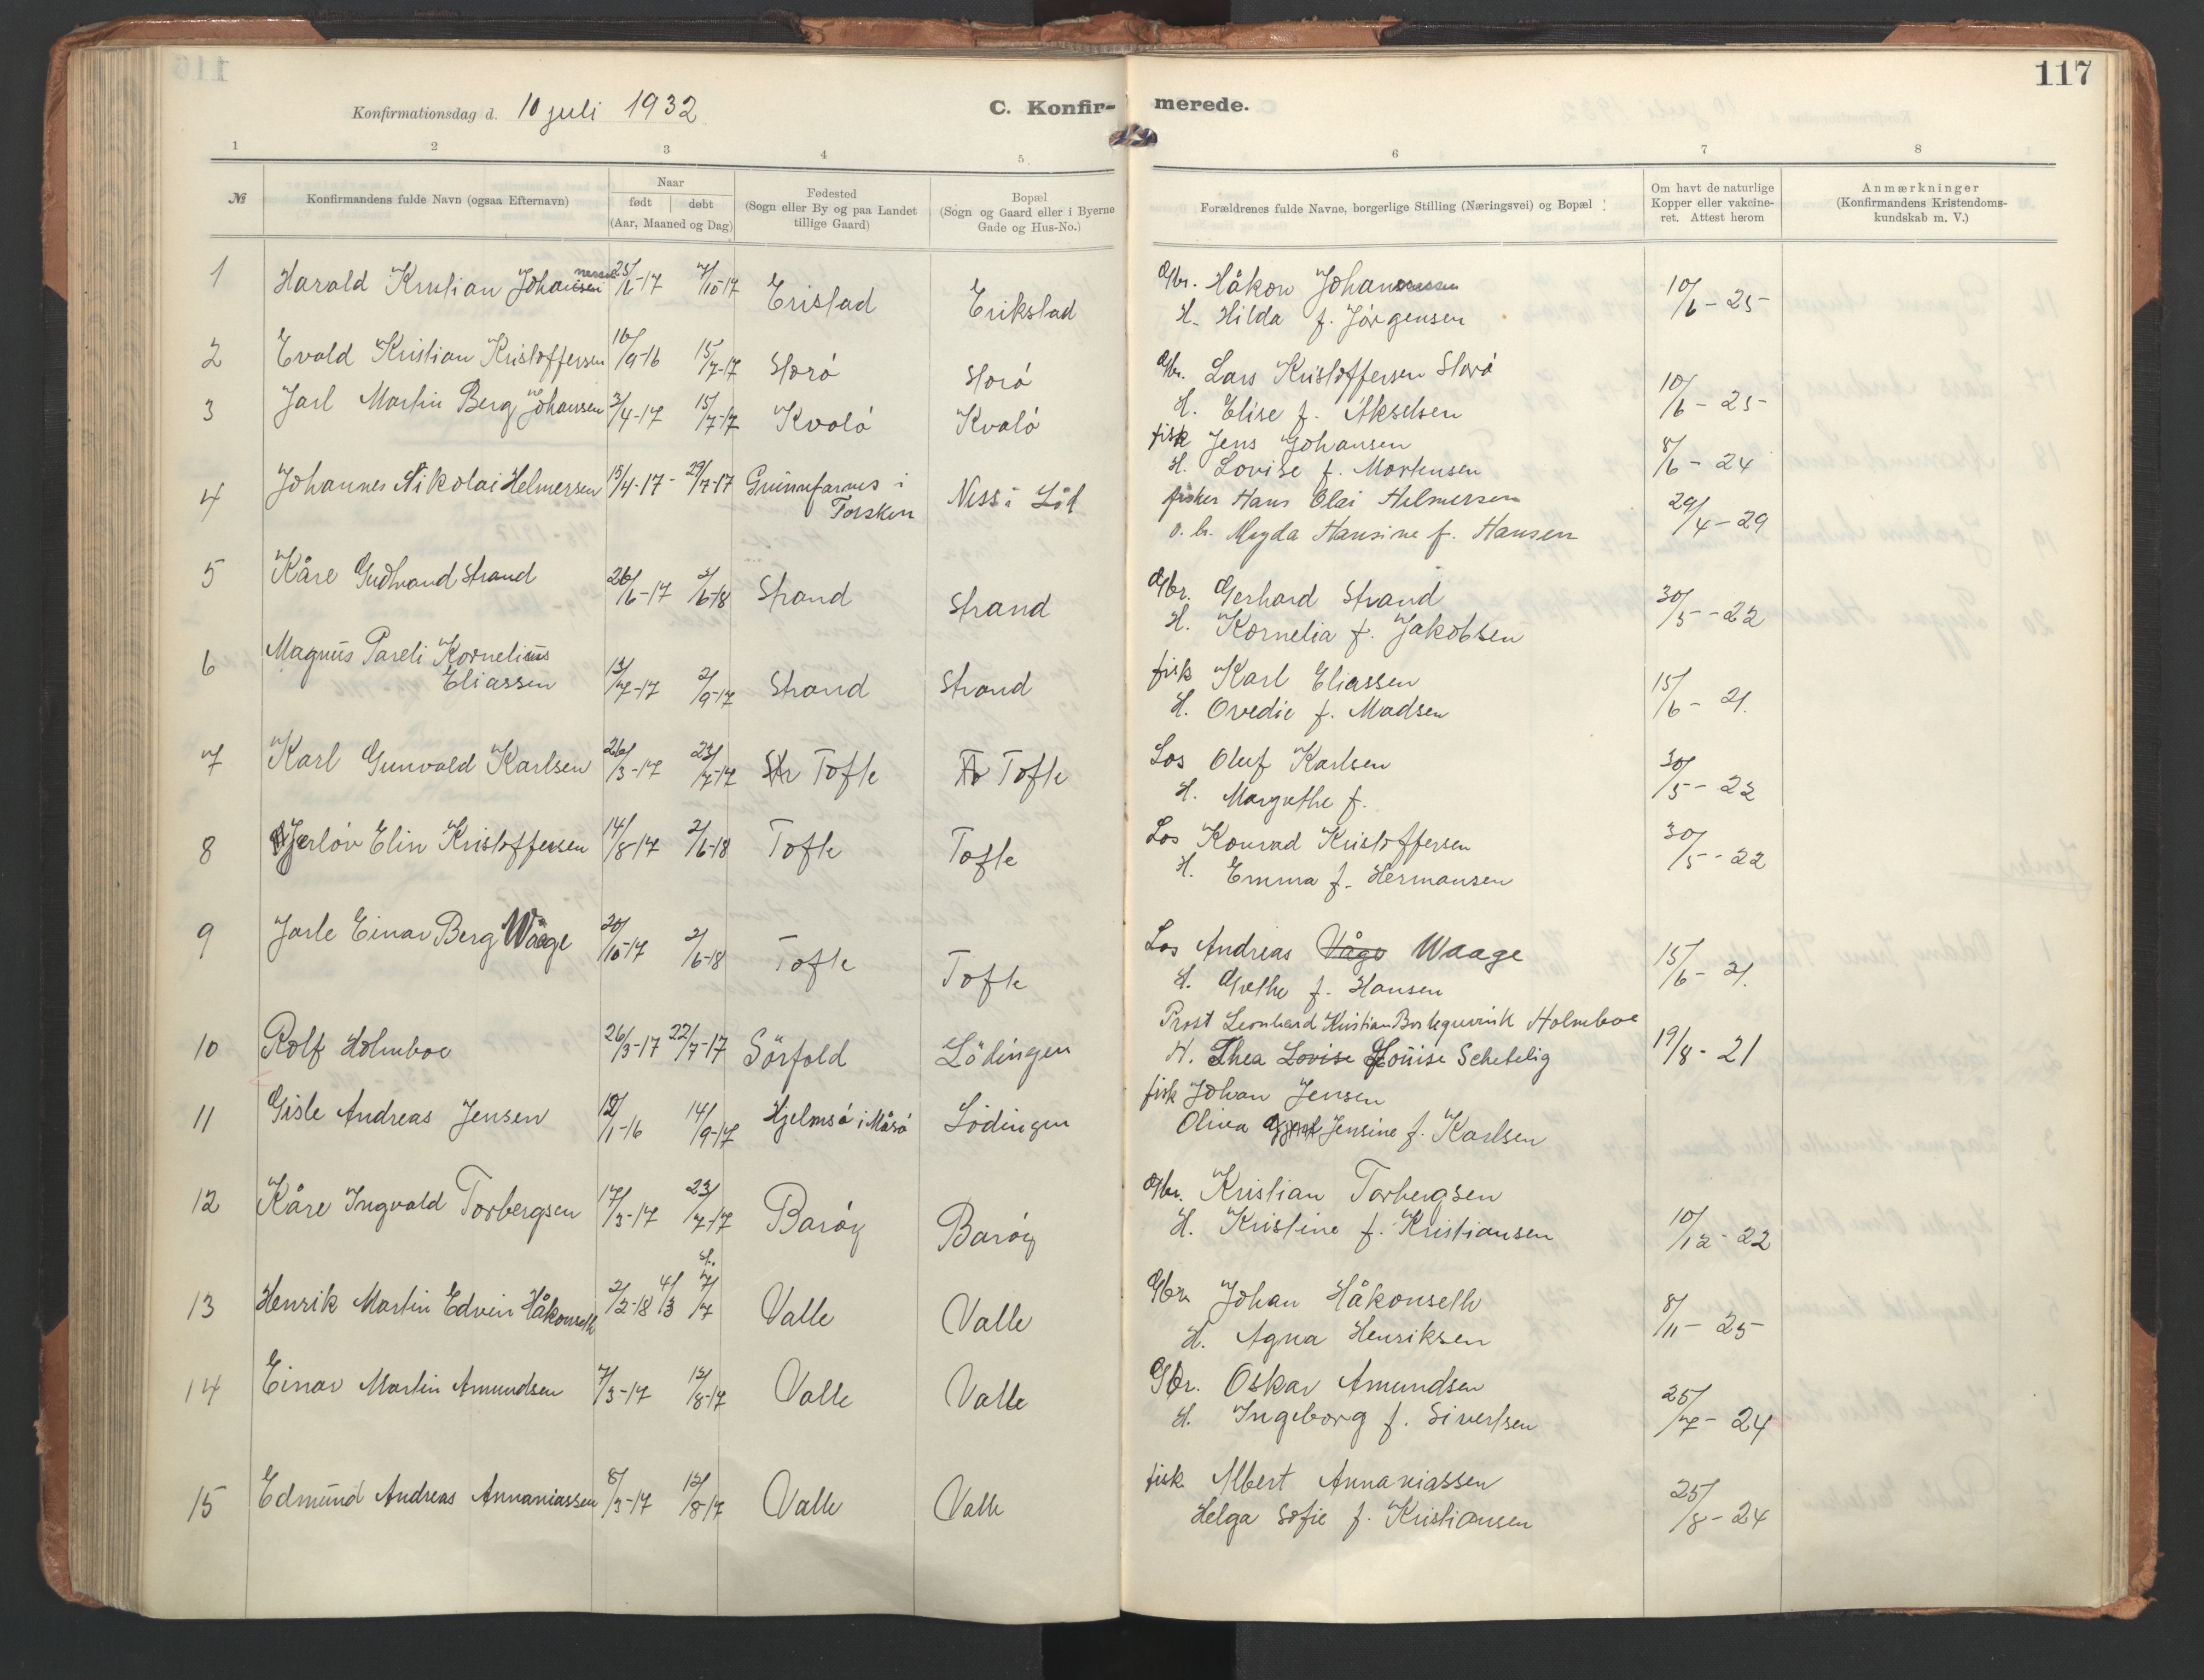 117
Konfirmationsdag d. 10 juli 1932
C. Konfir- merede.
1 2 3 4 5 6 7 8
№ Konfirmandens fulde Navn (ogsaa Efternavn) Naar født døbt (Aar, Maaned og Dag) Fødested (Sogn eller By og paa Landet tillige Gaard) Bopæl (Sogn og Gaard eller i Byerne Gade og Hus-No.) Forældrenes fulde Navne, borgerlige Stilling (Næringsvei) og Bopæl Om havt de naturlige Kopper eller vakcineret. Attest herom Anmærkninger (Konfirmandens Kristendomskundskab m. V.)
1 Harald Kristian Johannessen 25/6-17 7/10-17 Eristad Erikstad Gbr. Håkon Johannessen 10/6-25
H. Hilda f. Jørgensen
2 Evald Kristian Kristoffersen 16/9-16 15/7-17 Storö Storö Gbr. Lars Kristoffersen Storö 10/6-25
H. Elise f. Akselsen
3 Jarl Martin Berg Johansen 3/4-17 15/7-17 Kvalö Kvalö fisk Jens Johansen 8/6-24
H. Lovise f. Mortensen
4 Johannes Nikolai Helmersen 15/4-17- 29/7-17 Grunnfarnes i Torsken Ness i Löd fisker Hans Olai Helmersen 29/4-29
o. h. Magda Hansine f. Hansen
5 Kåre Gudtvand Strand 26/6-17 2/6-18 Strand Strand Gbr. Gerhard Strand 30/5-22
H. Kornelia f. Jakobsen
6 Magnus Pareli Kornelius Eliassen 13/7-17 2/9-17 Strand Strand fisk Karl Eliassen 15/6-21.
H. Ovedie f. Madsen
7 Karl Gunvald Karlsen 26/3-17 23/7-17 Tofte Tofte Los Oluf Karlsen 30/5-22
H. Margrethe f.
8 Hjerlöv Elin Kristoffersen 14/8-17 2/6-18 Tofte Tofte Los Konrad Kristoffersen 30/5-22
H. Emma f. Hermansen
9 Jarle Einar Berg Waage 20/10-17 2/6-18 Tofte Tofte Los Andreas Våge Waage 15/6-21.
H. Grethe f. Hansen
10 Rolf Holmboe 26/3-17 22/7-17 Sörfold Lödingen Prost Leonhard Kristian Borchgrevink Holmboe 19/8-21
H. Thea Lovise Louise Schetelig
11 Gisle Andreas Jensen 12/1-16 14/9-17 Hjelmsö i Måsö Lödingen fisk Johan Jensen
Olina Jensine f. Karlsen
12 Kåre Ingvald Torbergsen 17/3-17 23/7-17 Baröy Baröy Gbr. Kristian Torbergsen 10/12-22
H. Kristine f. Kristiansen
13 Henrik Martin Edvin Håkonseth 2/2-18 4/3 st. 7/7 Valle Valle Gbr. Johan Håkonseth 8/11-25
H. Agna Henriksen
14 Einar Martin Amundsen 7/3-17 12/8-17 Valle Valle Gbr. Oskar Amundsen 25/7-24
H. Ingeborg f. Sivertsen
15 Edmund Andreas Annaniassen 8/3-17 12/8-17 Valle Valle fisk Albert Annaniassen 25/8-24
Helga Sofie f. Kristiansen